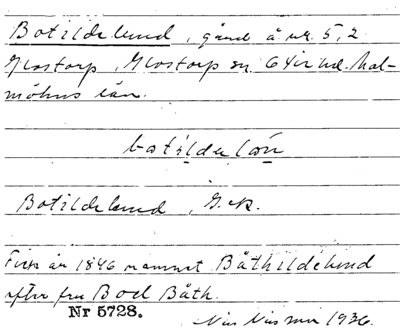 Botildelund, gård å nr. 5,2
Glostorp, Glostorp sn Oxie hd. Mal-
möhus län.
botildelón
Botildelund, G.ek.
Fick år 1846 namnet Båthildelund
efter fru Bod Bååth.
Nr 5728.
1936.